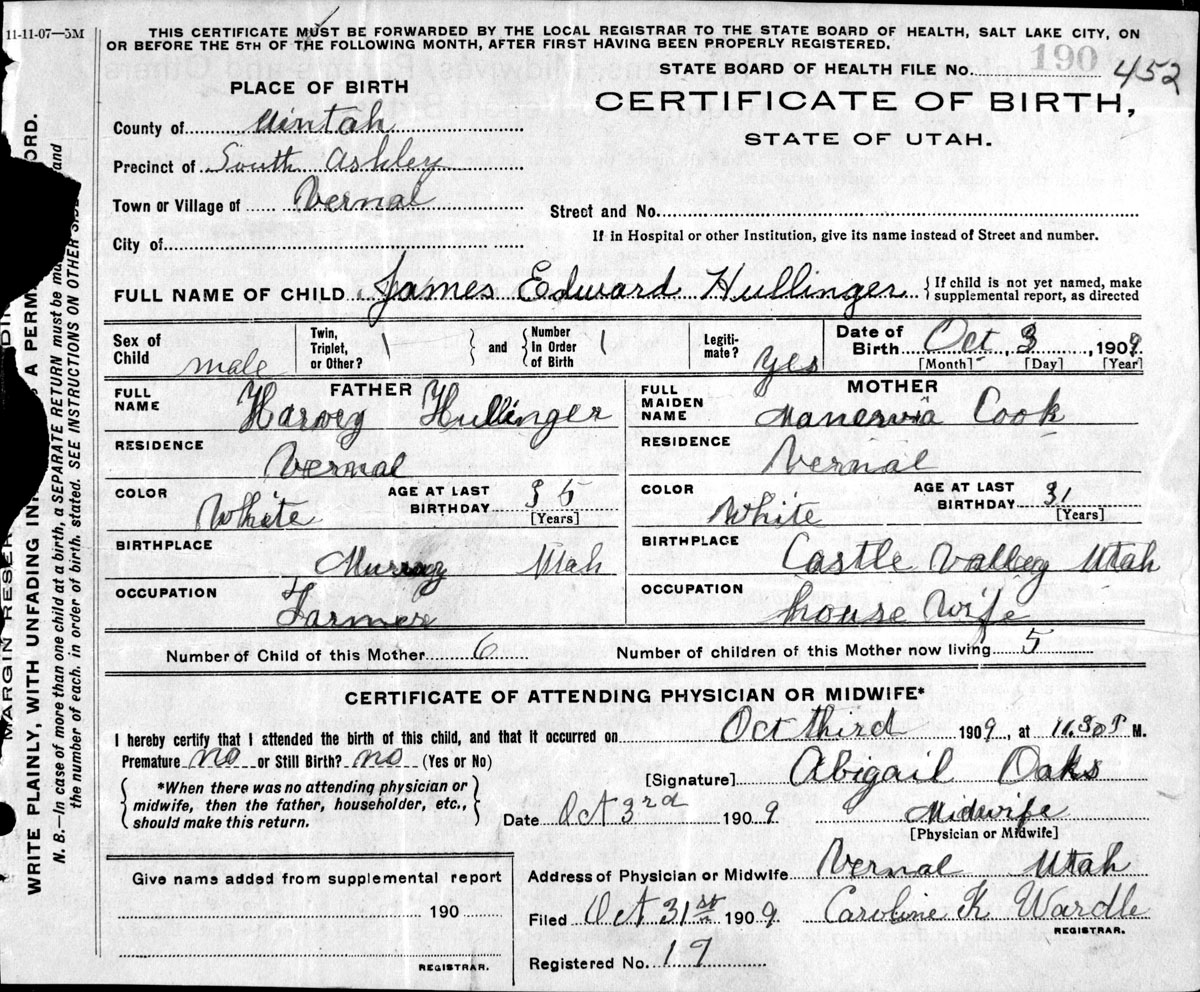 11-11-07—5M
THIS CERTIFICATE MUST BE FORWARDED BY THE LOCAL REGISTRAR TO THE STATE BOARD OF HEALTH, SALT LAKE CITY, ON
OR BEFORE THE 5TH OF THE FOLLOWING MONTH, AFTER FIRST HAVING BEEN PROPERLY REGISTERED.
STATE BOARD OF HEALTH FILE No. 190 452
PLACE OF BIRTH
CERTIFICATE OF BIRTH,
STATE OF UTAH.
County of Uintah
Precinct of South Ashley
Town or Village of Vernal
Street and No.
City of
If in Hospital or other Institution, give its name instead of Street and number.
FULL NAME OF CHILD James Edward Hullinger { If child is not yet named, make
supplemental report, as directed
Sex of Child male
Twin, Triplet, or Other? } and { Number in Order of Birth
Legiti-mate? Yes
Date of Birth Oct 3, 1909
[Month] [Day] [Year]
FATHER
FULL NAME Harvey Hullinger
RESIDENCE Vernal
COLOR White AGE AT LAST BIRTHDAY 35 [Years]
BIRTHPLACE Murray Utah
OCCUPATION Farmer
MOTHER
FULL MAIDEN NAME Manervia Cook
RESIDENCE Vernal
COLOR White AGE AT LAST BIRTHDAY 31 [Years]
BIRTHPLACE Castle Valley Utah
OCCUPATION house Wife
Number of Child of this Mother 6 Number of children of this Mother now living 5
CERTIFICATE OF ATTENDING PHYSICIAN OR MIDWIFE*
I hereby certify that I attended the birth of this child, and that it occurred on Oct third 1909, at M.
Premature no or Still Birth? no (Yes or No)
{ *When there was no attending physician or
midwife, then the father, householder, etc.,
should make this return. }
[Signature] Abigail Oaks
Date Oct 3rd 1909 Midwife
[Physician or Midwife]
Address of Physician or Midwife Vernal Utah
Filed Oct 31st 1909 Caroline K Wardle
REGISTRAR.
Registered No. 19
Give name added from supplemental report
190
REGISTRAR.
MARGIN RESER
WRITE PLAINLY, WITH UNFADING IN A PERMA ORD.
N. B.—In case of more than one child at a birth, a SEPARATE RETURN must be ma and
the number of each, in order of birth, stated. SEE INSTRUCTIONS ON OTHER SIDE